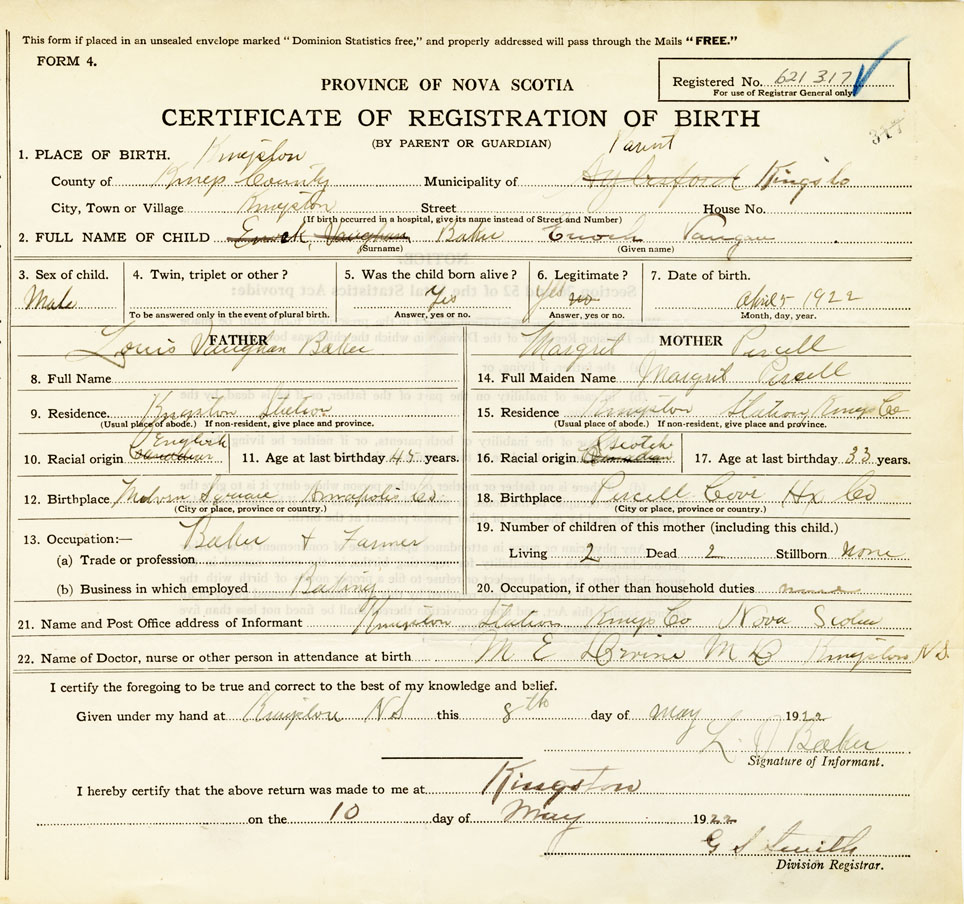 This form if placed in an unsealed envelope marked "Dominion Statistics free," and properly addressed will pass through the Mails "FREE."
FORM 4.
Registered No. 621317
For use of Registrar General only
PROVINCE OF NOVA SCOTIA
CERTIFICATE OF REGISTRATION OF BIRTH
(BY PARENT OR GUARDIAN) Parent
1. PLACE OF BIRTH. Kingston
County of Kings County Municipality of Aylesford Kings Co
City, Town or Village Kingston Street House No.
(If birth occurred in a hospital, give its name instead of Street and Number)
2. FULL NAME OF CHILD Enoch, Vaughan Baker Enoch Vaugan
(Surname) (Given name)
3. Sex of child. 4. Twin, triplet or other? 5. Was the child born alive? 6. Legitimate? 7. Date of birth.
Male Yes Yes no April 5 1922
To be answered only in the event of plural birth. Answer, yes or no. Answer, yes or no. Month, day, year.
FATHER MOTHER
Louis Vaughan Baker Margrit Purcell
8. Full Name 14. Full Maiden Name Margrit Purcell
9. Residence. Kingston Station 15. Residence Kingston Station Kings Co
(Usual place of abode.) If non-resident, give place and province. (Usual place of abode.) If non-resident, give place and province.
English Scotch
10. Racial origin Canadian 11. Age at last birthday 45 years. 16. Racial origin Canadian 17. Age at last birthday 33 years.
12. Birthplace Melvern Square Annapolis Co 18. Birthplace Purcell Cove Hx Co
(City or place, province or country.) (City or place, province or country.)
13. Occupation:— Baker & Farmer 19. Number of children of this mother (including this child.)
(a) Trade or profession Living 2 Dead 2 Stillborn None
(b) Business in which employed Baking 20. Occupation, if other than household duties
21. Name and Post Office address of Informant Kingston Station Kings Co Nova Scotia
22. Name of Doctor, nurse or other person in attendance at birth M E Irvine M D Kingston N S.
I certify the foregoing to be true and correct to the best of my knowledge and belief.
Given under my hand at Kingston N S this 8th day of May 1922
L. V Baker
Signature of Informant.
I hereby certify that the above return was made to me at Kingston
on the 10 day of May 1922
G S Smith
Division Registrar.